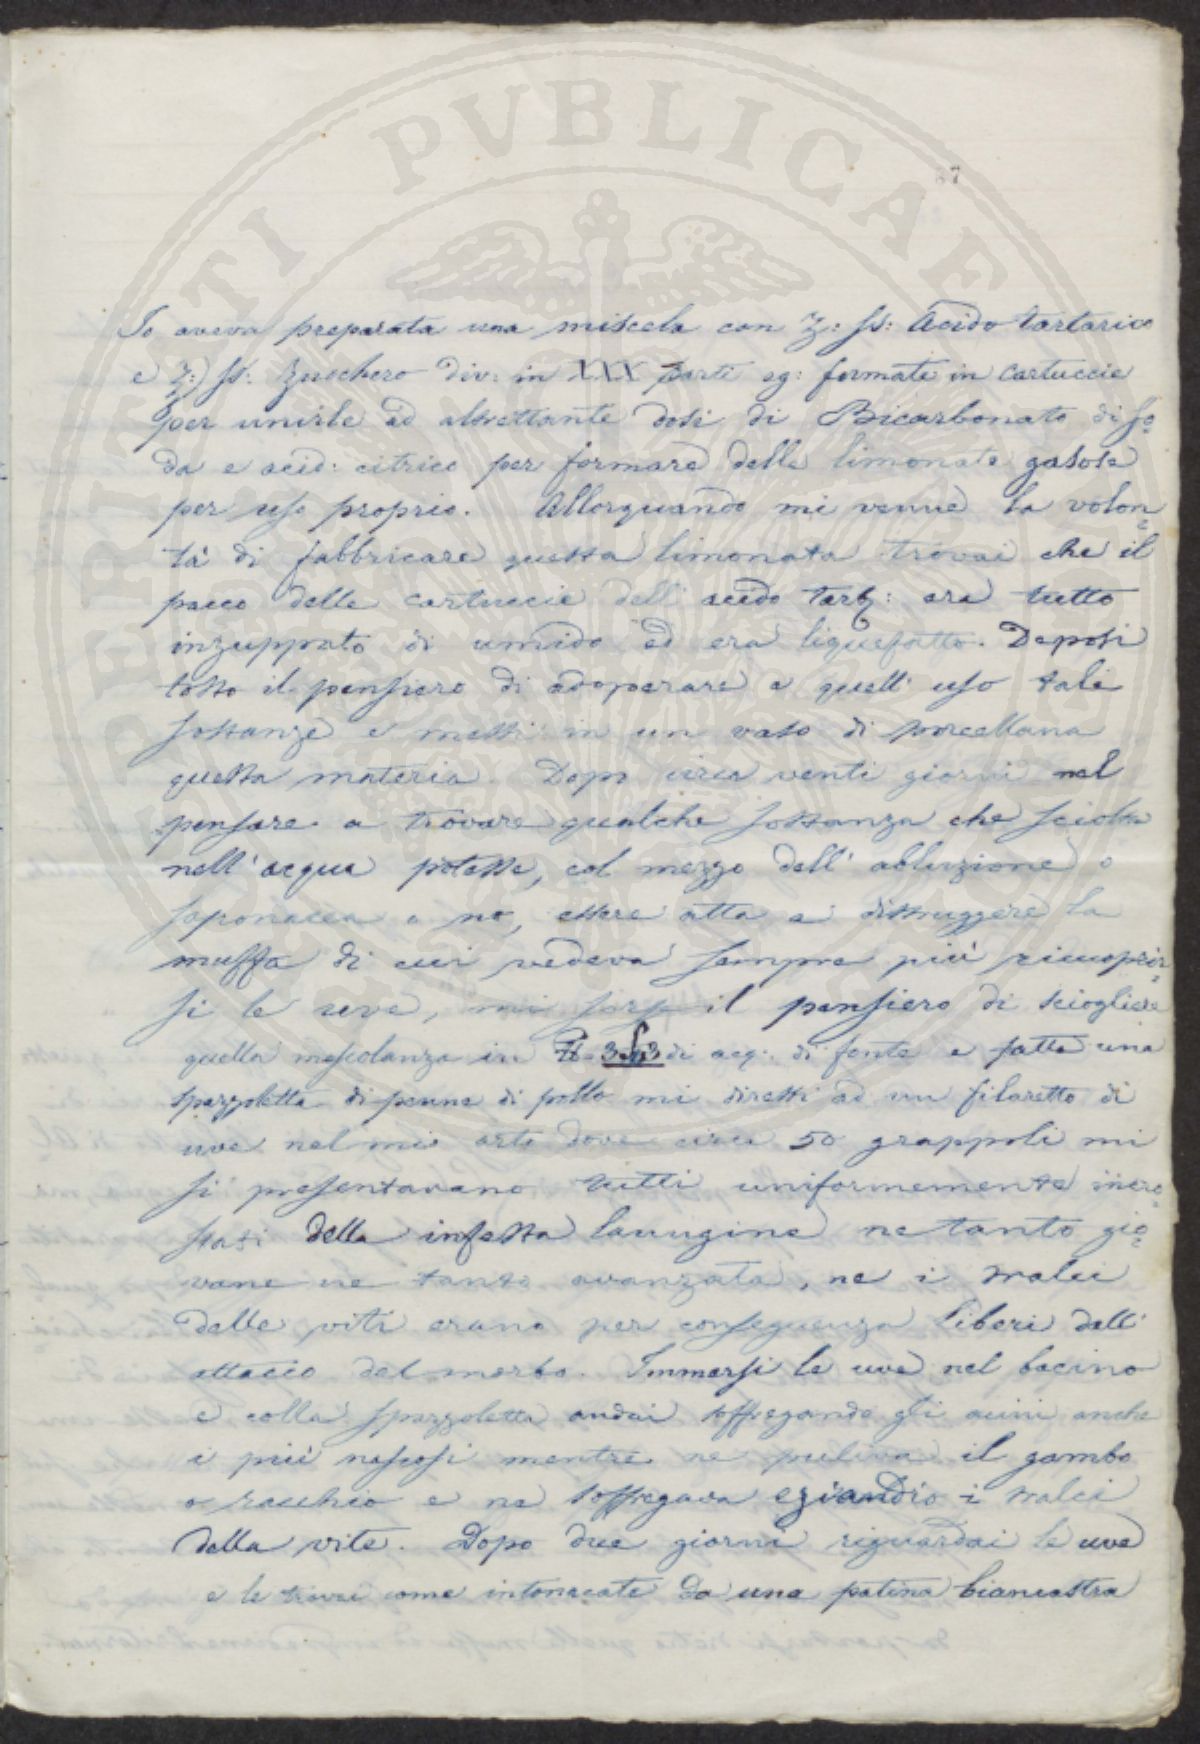 PERITATI PVBLICAE
67
Io aveva preparata una miscela con ℥: ss: Acido tartarico
e ℥: ss: Zucchero div: in XXX parti eg: formate in cartuccie
per unirle ad altrettante dosi di Bicarbonato di so=
da e acid: citrico per formare delle limonate gasose
per uso proprio. Allorquando mi venne la volon=
tà di fabbricare questa limonata trovai che il
pacco delle cartuccie dell' acido tart: era tutto
inzuppato di umido ed era liquefatto. Deposi
tosto il pensiero di adoperare a quell' uso tali
sostanze e messi in un vaso di porcellana
questa materia. Dopo circa venti giorni nel
pensare a trovare qualche sostanza che sciolta
nell' acqua potesse, col mezzo dell' abluzione o
saponacea o no, essere atta a distruggere la
muffa di cui vedeva sempre più ricuoprir=
si le uve, mi sorse il pensiero di sciogliere
quella mescolanza in di acq: di fonte e fatta una
spazzoletta di penne di pollo mi diressi ad un filaretto di
uve nel mio orto dove circa 50 grappoli mi
si presentavano tutti uniformemente incro=
stati della infesta lanugine ne tanto gio=
vane ne tanto avanzata, ne i tralci
delle viti erano per conseguenza liberi dall'
attacco del morbo. Immersi le uve nel bacino
e colla spazzoletta andai soffregando gli acini anche
i più nascosi mentre ne puliva il gambo
o racchio e ne soffregava eziandio i tralci
della vite. Dopo due giorni riguardai le uve
e le trovai come intonacate da una patina biancastra